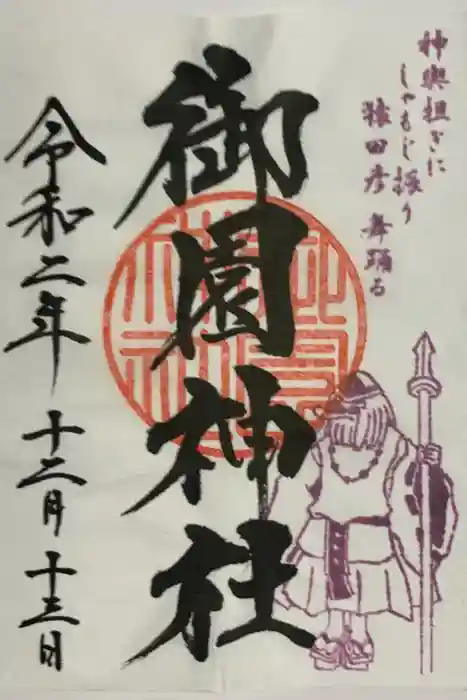 神輿担ぎに
しゃもじ振り
猿田彦 舞踊る
御園神社
令和二年 十二月 十三日